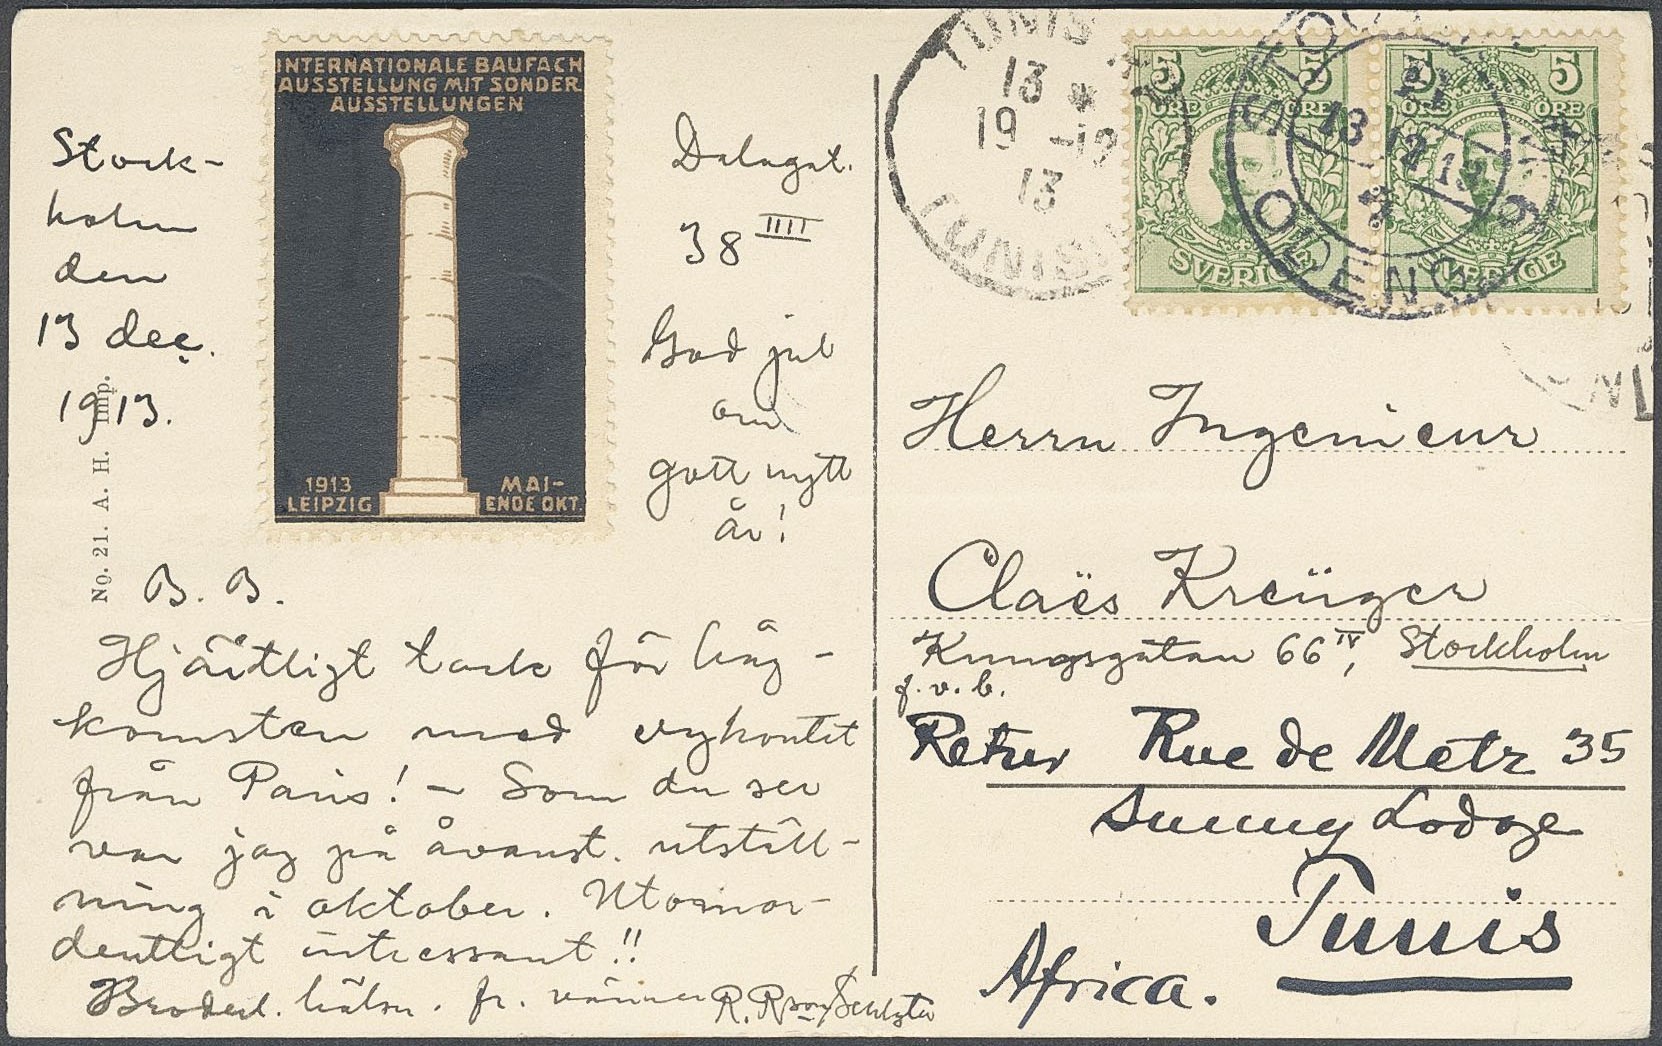 Stock-
holm
den
13 dec.
1913.
No. 21. A. H. Imp.
INTERNATIONALE BAUFACH
AUSSTELLUNG MIT SONDER
AUSSTELLUNGEN
1913
LEIPZIG
MAI-
ENDE OKT.
Dalagat.
38 IIII
God jul
om
gott nytt
år!
B. B.
Hjärtligt tack för håg-
komsten med vykortet
från Paris! – Som du ser
var jag på åvanst. utställ-
ning i oktober. Utomor-
dentligt intressant!!
Broderl. hälsn. fr. vännen R. Rson
TUNIS
13 *
19 -12
13
TUNISIE
5 5
ÖRE ÖRE
SVERIGE
5 5
ÖRE ÖRE
SVERIGE
13 12 13
ODENG
Herrn Ingenieur
Claës Kreüger
Kungsgatan 66 IV, Stockholm
f. v. b.
Retur Rue de Metz 35
Sunny Lodge
Tunis
Africa.